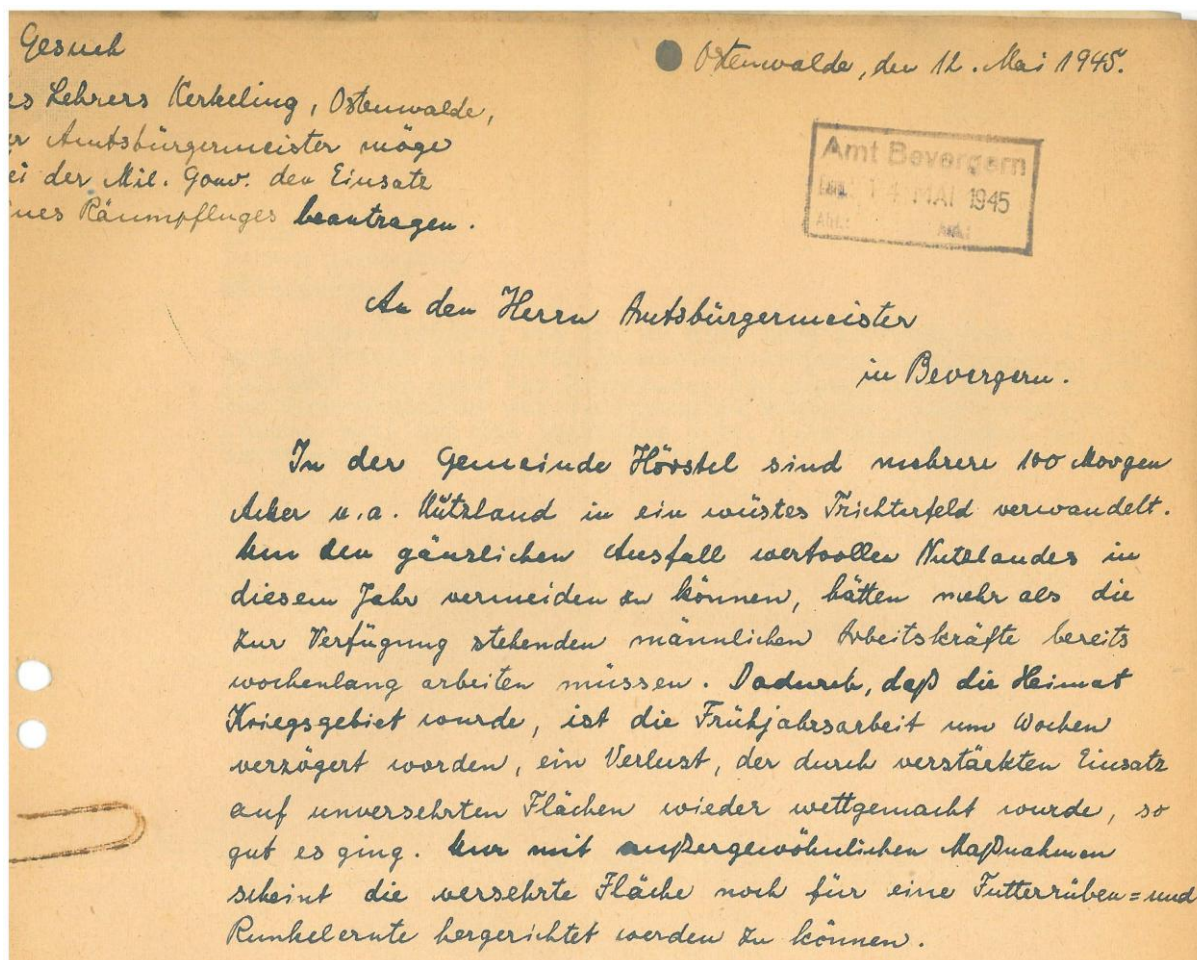 Gesuch
es Lehrers Kerkeling, Ostenwalde,
er Amtsbürgermeister möge
ei der Mil. Gouv. den Einsatz
ines Räumpfluges beantragen.
Ostenwalde, den 12. Mai 1945.
Amt Bevergern
Eing. 14 MAI 1945
Abt.:
An den Herrn Amtsbürgermeister
in Bevergern.
In der Gemeinde Hörstel sind mehrere 100 Morgen
Acker u. a. Nützland in ein wüstes Trichterfeld verwandelt.
Um den gänzlichen Ausfall wertvollen Nutzlandes in
diesem Jahr vermeiden zu können, hätten mehr als die
zur Verfügung stehenden männlichen Arbeitskräfte bereits
wochenlang arbeiten müssen. Dadurch, daß die Heimat
Kriegsgebiet wurde, ist die Frühjahrsarbeit um Wochen
verzögert worden, ein Verlust, der durch verstärkten Einsatz
auf unversehrten Flächen wieder wettgemacht wurde, so
gut es ging. Nur mit außergewöhnlichen Maßnahmen
scheint die versehrte Fläche noch für eine Futterrüben= und
Runkelernte hergerichtet werden zu können.